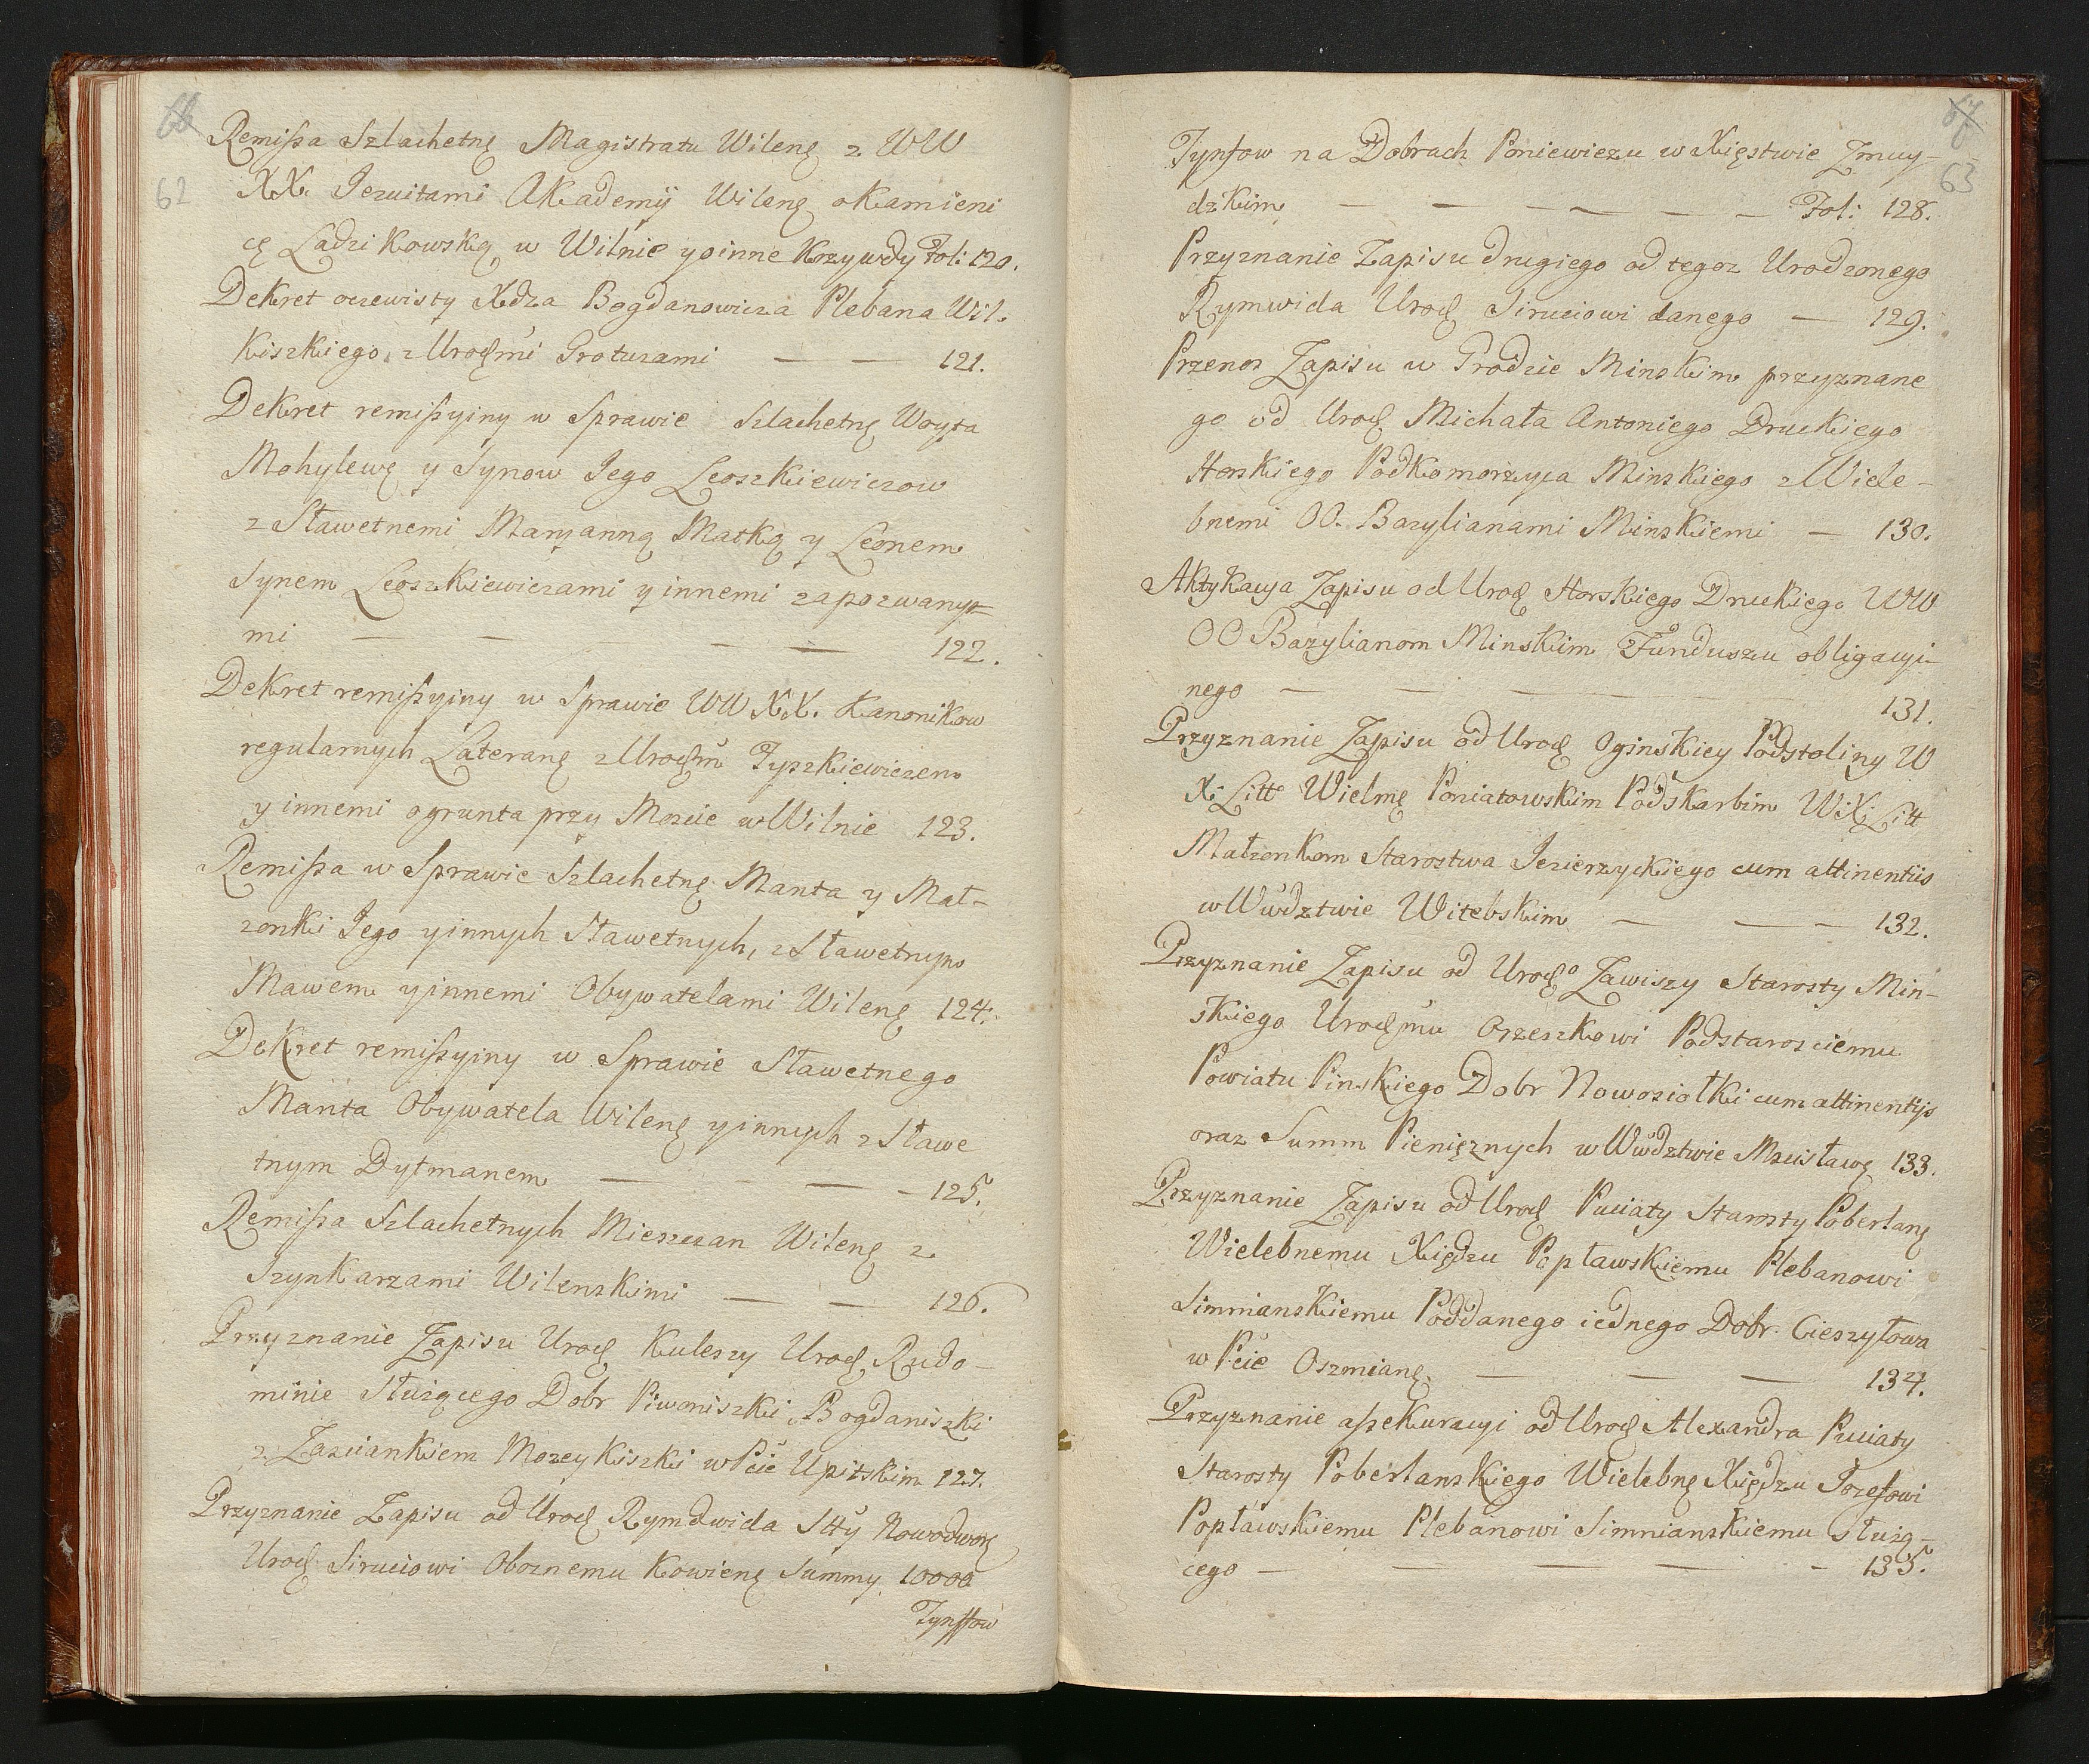 66
62
Remissa Szlachetnę Magistratu Wilenę z WW
XX. Jezuitami Akademij Wilenę o Kamieni
cę Ladzikowską w Wilnie y o inne Krzywdy Fol: 120.
Dekret oczewisty Xdza Bogdanowicza Plebana Wil-
kiszkiego, z Urodzmi Protuzami — — 121.
Dekret remissyiny w Sprawie Szlachetnę Woyta
Mohylewę y Synow Jego Leoszkiewiczow
z Sławetnemi Maryanną Matką y Leonem
Synem Leoszkiewiczami y innemi zapozwany-
mi — — — — 122.
Dekret remissyiny w Sprawie WW XX. Kanonikow
regularnych Lateranę z Urodzm Tyszkiewiczem
y innemi o grunta przy Moście w Wilnie 123.
Remissa w Sprawie Szlachetnę Manta y Mał-
zonki Jego y innych Sławetnych, z Sławetnym
Mawem y innemi Obywatelami Wilenę 124.
Dekret remissyiny w Sprawie Sławetnego
Manta Obywatela Wilenę y innych z Sławe
tnym Dytmanem — — — 125.
Remissa Szlachetnych Mieszczan Wilenę z
Szynkarzami Wilenskimi — — 126.
Przyznanie Zapisu Urodz Kuleszy Urodz Rudo-
minie Służącego Dobr Piwoniszki, Bogdaniszki
z Zasciankiem Mozeykiszki w Pcie Upitskim 127.
Przyznanie Zapisu od Urodz Rymdwida Stty Nowodworę
Urodz Siruciowi Oboznemu Kowienę Summy 10000
Tynffow
67
63
Tynfow na Dobrach Poniewiezu w Xięstwie Zmuy-
dzkim — — — — — — Fol: 128.
Przyznanie Zapisu drugiego od tegoz Urodzonego
Rymwida Urodz Siruciowi danego — 129.
Przenos Zapisu w Grodzie Minskim przyznane
go od Urodz Michała Antoniego Druckiego
Horskiego Podkomorzyca Minskiego z Wiele-
bnemi OO. Bazylianami Minskiemi — 130.
Aktykacya Zapisu od Urodz Horskiego Druckiego WW
OO Bazylianom Minskim Funduszu obligacyi-
nego — — — 131.
Przyznanie Zapisu od Urodz Oginskiey Podstoliny W
X. Litt Wielmę Poniatowskim Podskarbim W: X: Litt
Małzonkom Starostwa Jezierzyckiego cum attinentiis
w Wudztwie Witebskim — — — 132.
Przyznanie Zapisu od Urodzo Zawiszy Starosty Min-
skiego Urodzmu Orzeszkowi Podstarosciemu
Powiatu Pinskiego Dobr Nowosiołki cum attinentijs
oraz Summ Pieniężnych w Wudztwie Mscisławę 133.
Przyznanie Zapisu od Urodz Puciaty Starosty Poberlanę
Wielebnemu Xiędzu Popławskiemu Plebanowi
Simnianskiemu Poddanego iednego Dobr Cieszyłowa
w Pcie Oszmianę. — — — 134.
Przyznanie assekuracyi od Urodz Alexandra Puciaty
Starosty Poberlanskiego Wielebnę Xiędzu Jozefowi
Popławskiemu Plebanowi Simnianskiemu służą-
cego — — — — — 135.